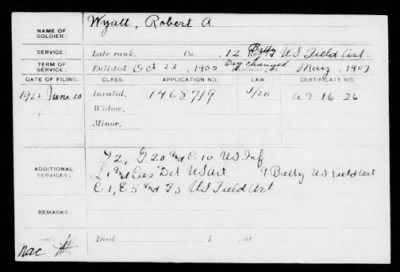 NAME OF SOLDIER: Wyatt, Robert A.
SERVICE: Late rank, Co. 12 Batty US Field Art
TERM OF SERVICE: Enlisted Oct 22, 1900 Discharged May, 1907
DATE OF FILING. CLASS. APPLICATION NO. LAW. CERTIFICATE NO.
1921 June 20 Invalid, 1468719 J/20 A 9-16-26
Widow,
Minor,
ADDITIONAL SERVICES: G 2, G 20 and C 10 US Inf
L 1, and Cas Det US Art 9 Batty US Field Art
E 1, E 5 and F 5 US Field Art
REMARKS:
Died , 1 , at
nac